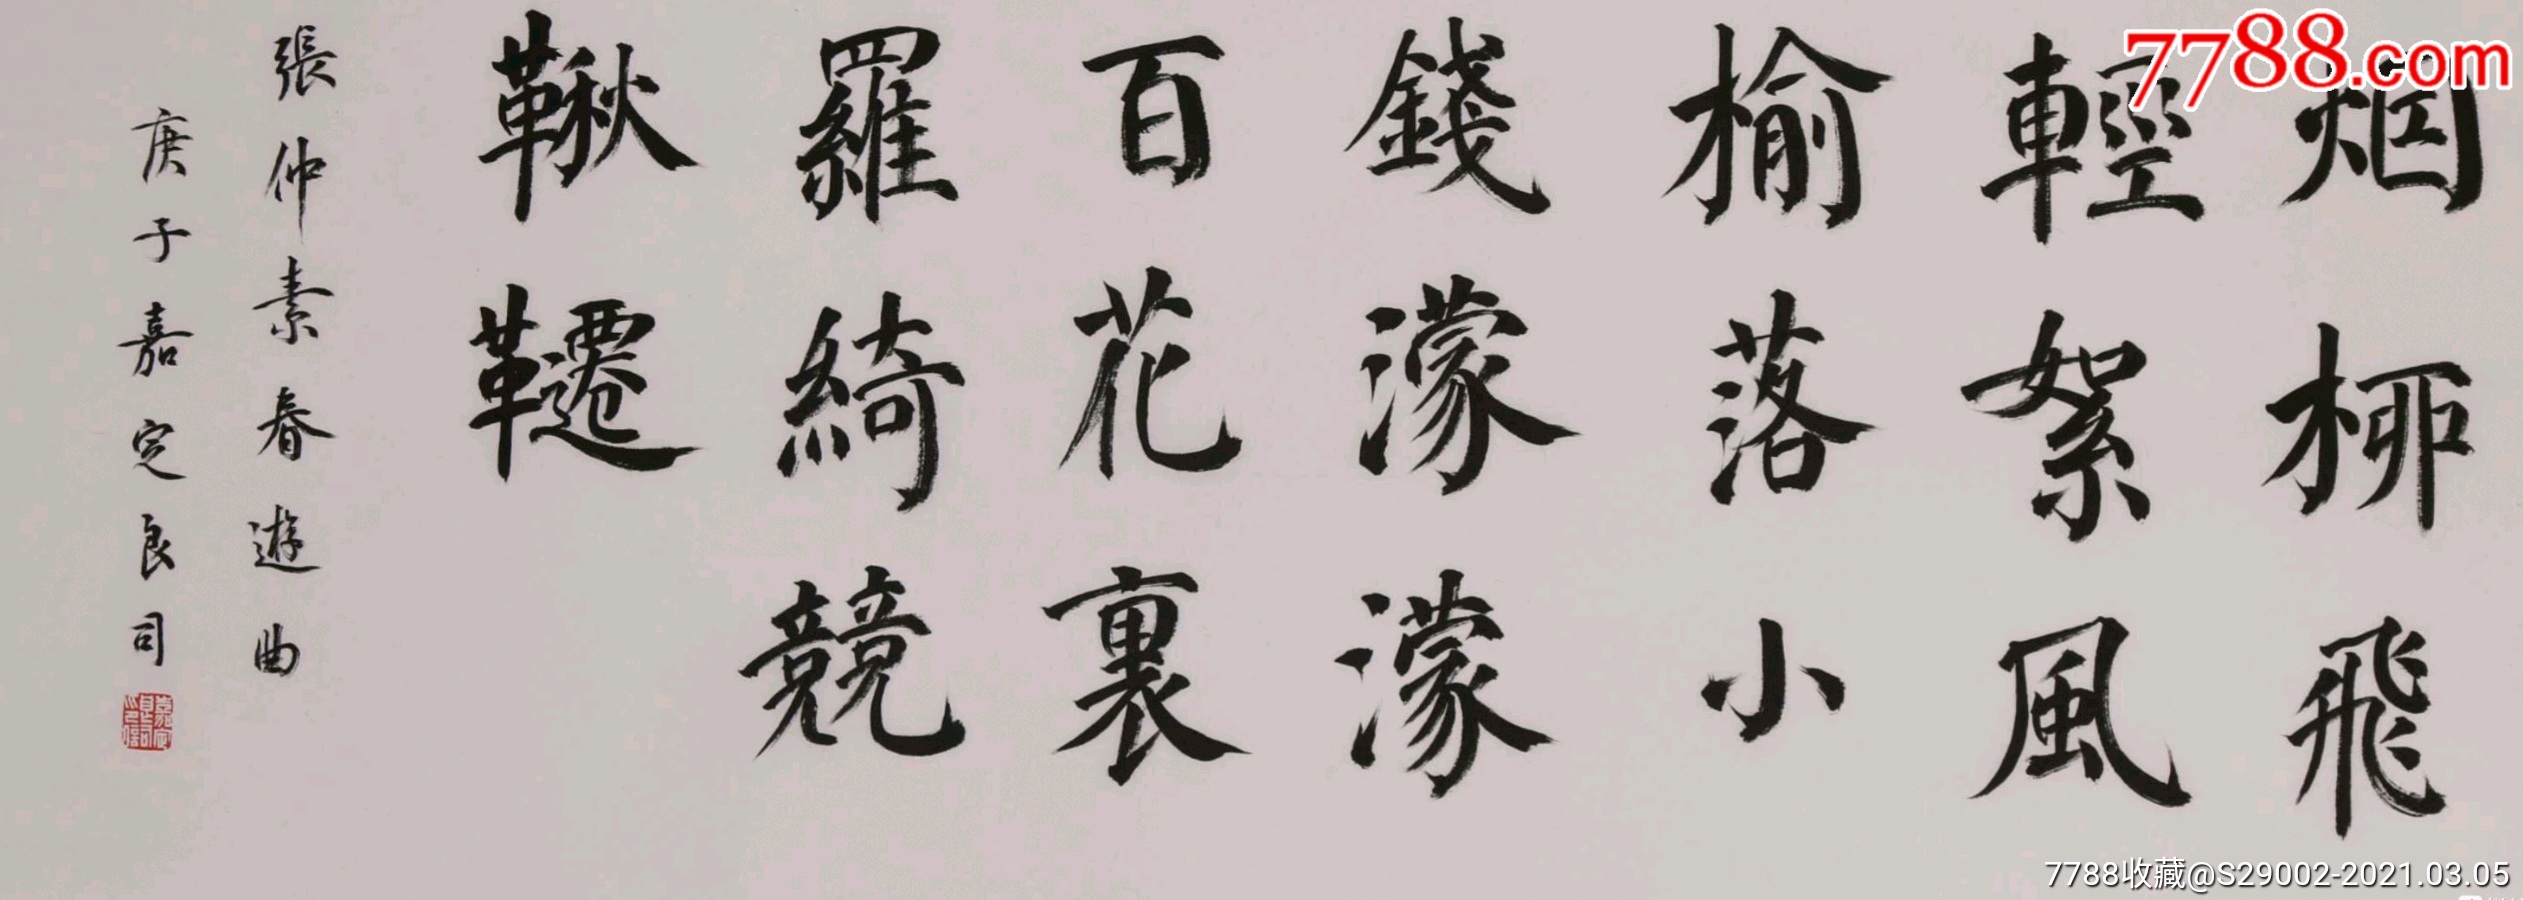 烟柳飛
輕絮風
榆落小
錢濛濛
百花裏
羅綺競
鞦韆
張仲素春遊曲
庚子嘉定良司
7788.com
7788收藏@S29002-2021.03.05